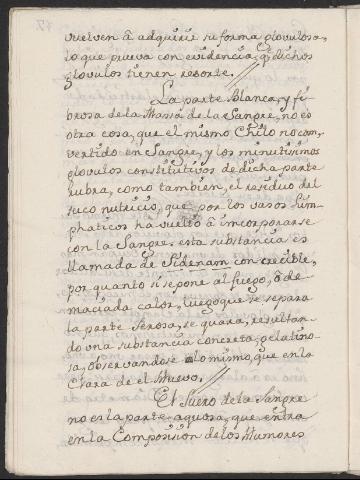 vuelven â adquirir su forma glovulosa,
lo que prueva con evidencia, q.e dichos
glovulos tienen resorte.
La parte Blanca, y fi
brosa de la Masa de la Sangre, no es
otra cosa, que el mismo Chilo no con,
vertido en Sangre, y los minutisimos
glovulos constitutivos de dicha parte
rubra, como tambien, el residuo del
suco nutricio, que por los vasos Lim
phaticos ha vuelto â incorporarse
con la Sangre, esta substancia es
llamada de Sidenam concrecible,
por quanto si se pone al fuego, ô de
maciada calor, luego que se separa
la parte Serosa, se quara, resultan
do una substancia concreta, gelatino
sa, observandose lo mismo, que en la
Clara de el Huevo.
El Suero de la Sangre
no es la parte aquosa, que entra
en la Composision de los Humores